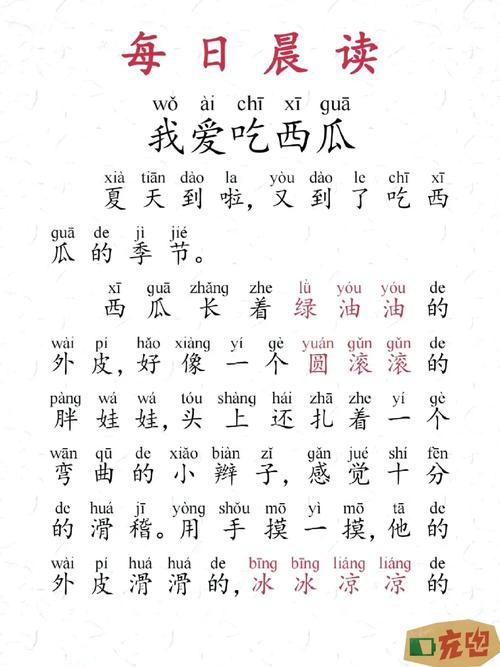 每日晨读
wǒ ài chī xī guā
我爱吃西瓜
xià tiān dào la yòu dào le chī xī
夏天到啦，又到了吃西
guā de jì jié
瓜的季节。
xī guā zhǎng zhe lǜ yóu yóu de
西瓜长着绿油油的
wài pí hǎo xiàng yí gè yuán gǔn gǔn de
外皮，好像一个圆滚滚的
pàng wá wá tóu shàng hái zhā zhe yí gè
胖娃娃，头上还扎着一个
wān qū de xiǎo biàn zi gǎn jué shí fēn
弯曲的小辫子，感觉十分
de huá jī yòng shǒu mō yì mō tā de
的滑稽。用手摸一摸，他的
wài pí huá huá de bīng bīng liáng liáng de
外皮滑滑的，冰冰凉凉的
充电